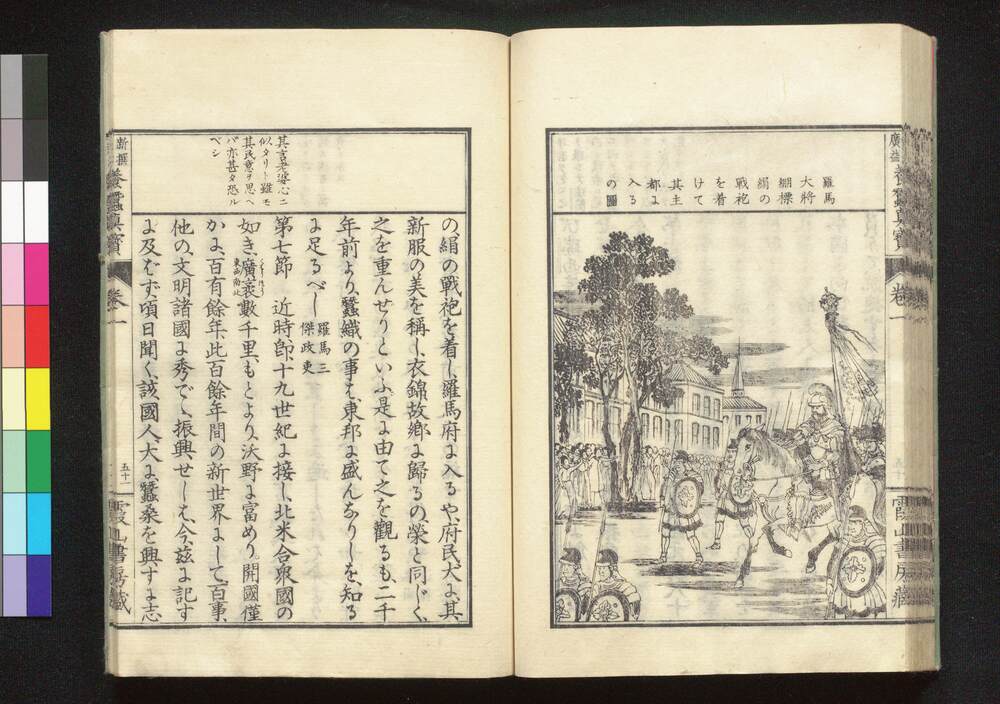 養蠶眞寶
卷一
霞山書房藏
羅馬
大將
綳標
絹の
戰袍
を着
けて
其主
都よ
入る
の圖
の、絹の戰袍を着し、羅馬府よ入るや、府民大よ、其
新服の美を稱し、衣錦故鄉よ歸るの、榮と同じく、
之を重んせりといふ、是よ由て之を觀るも、二千
年前より、蠶織の事も、東邦よ盛んなりしを、知る
よ足るべし
羅馬三
傑政東
第七節 近時、卽、十九世紀よ接し、北米合衆國の
如き、廣袤數千里、もとより、沃野よ富めり。開國僅
東西南北
かよ、百有餘年、此百餘年間の新世界よして、百事、
他の、文明諸國よ秀で、振興せしも、今茲よ記す
よ及ばず、頃日聞く、該國人、大よ、蠶桑を興、すよ志
其言老婆心ニ
似タリト雖モ
其民意ヲ思ヘ
バ亦甚タ恐ル
ベシ
新撰
養蠶眞寶
卷一
五十
霞山書房藏